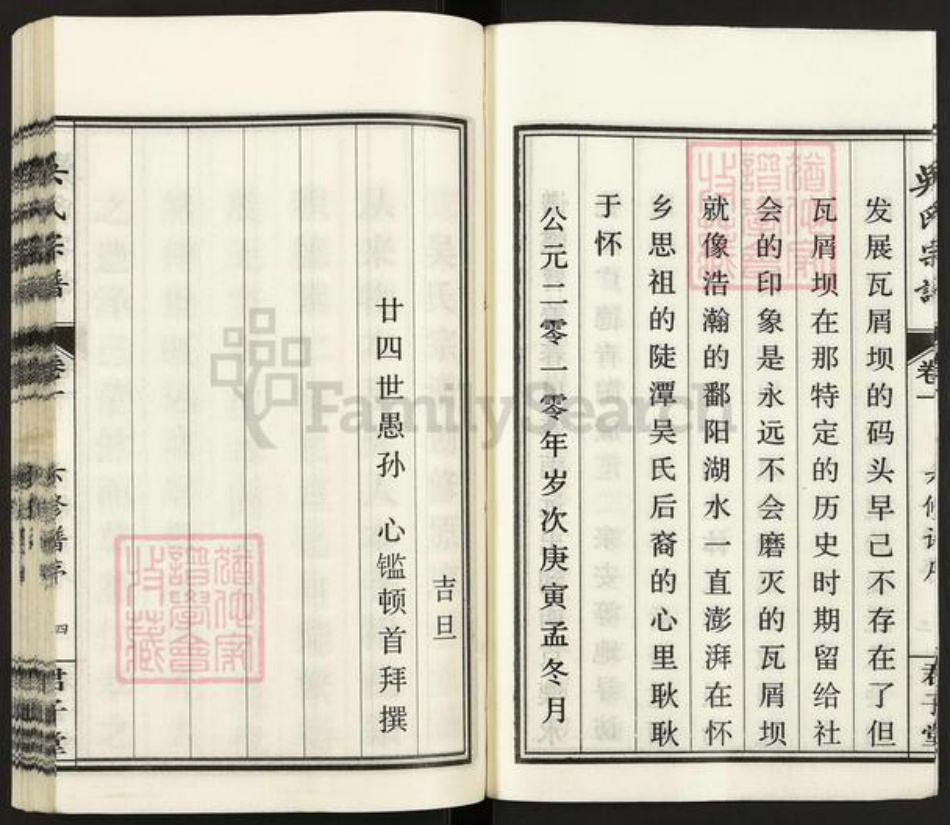 吴氏宗谱
卷一
六修谱序
君子堂
发展瓦屑坝的码头早已不存在了但
瓦屑坝在那特定的历史时期留给社
会的印象是永远不会磨灭的瓦屑坝
就像浩瀚的鄱阳湖水一直澎湃在怀
乡思祖的陡潭吴氏后裔的心里耿耿
于怀
公元二零一零年岁次庚寅孟冬月
吉旦
廿四世愚孙 心鑑顿首拜撰
氏宗谱
卷一
六修谱序
四
君子堂
FamilySearch